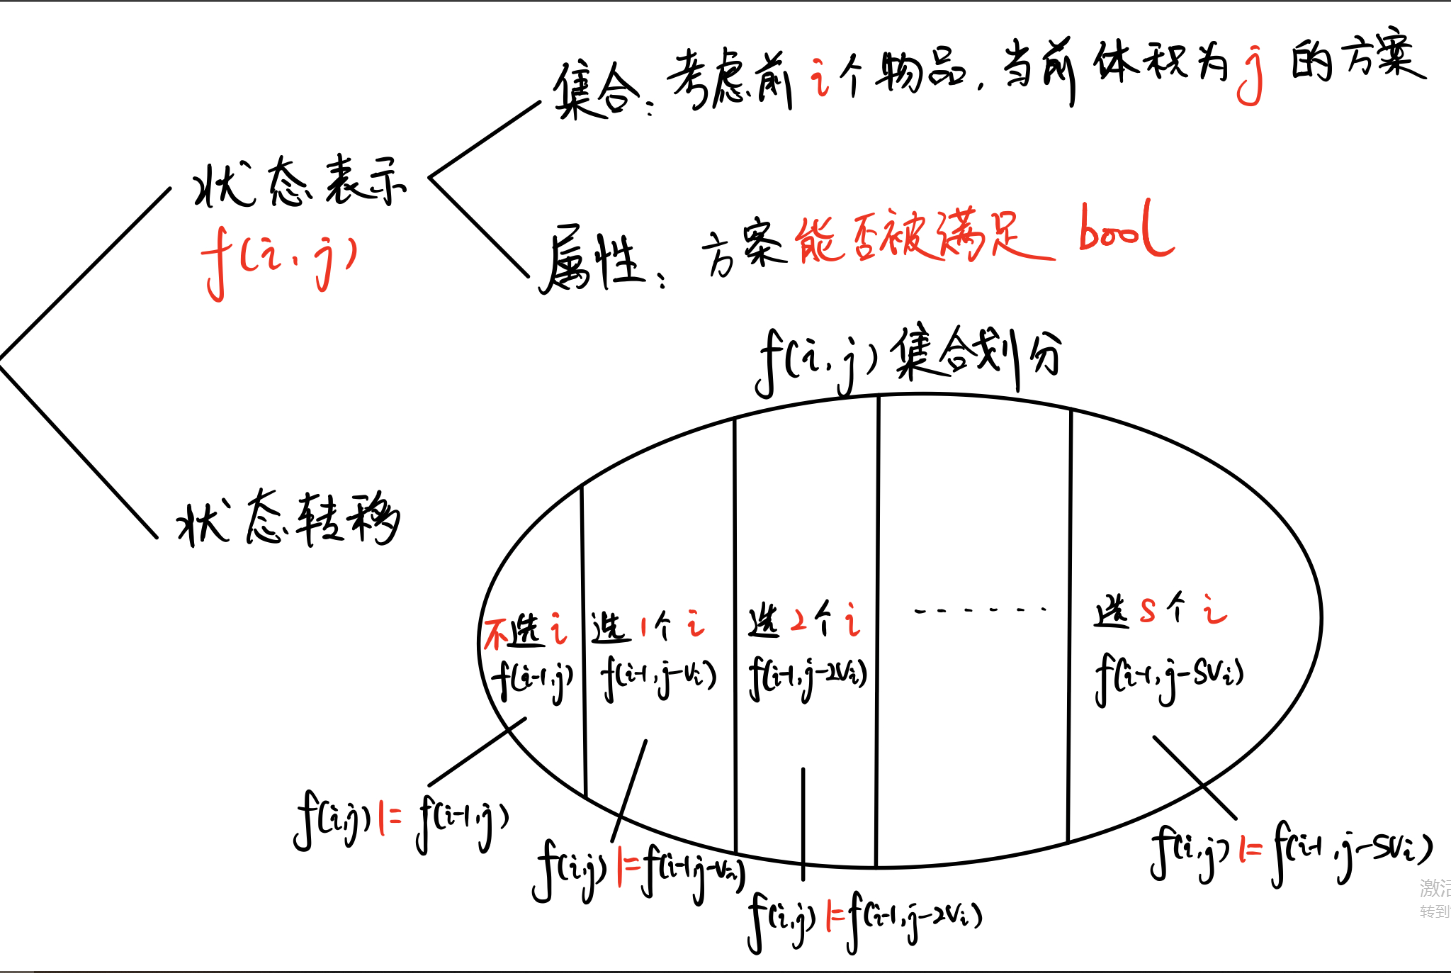 集合：考虑前i个物品，当前体积为j的方案
状态表示
f(i,j)
属性：方案能否被满足 bool
f(i,j)集合划分
状态转移
不选i
f(i-1,j)
选1个i
f(i-1,j-vi)
选2个i
f(i-1,j-2vi)
------
选S个i
f(i-1,j-SVi)
f(i,j)|=f(i-1,j)
f(i,j)|=f(i-1,j-vi)
f(i,j)|=f(i-1,j-2vi)
f(i,j)|=f(i-1,j-SVi)
激活
转到